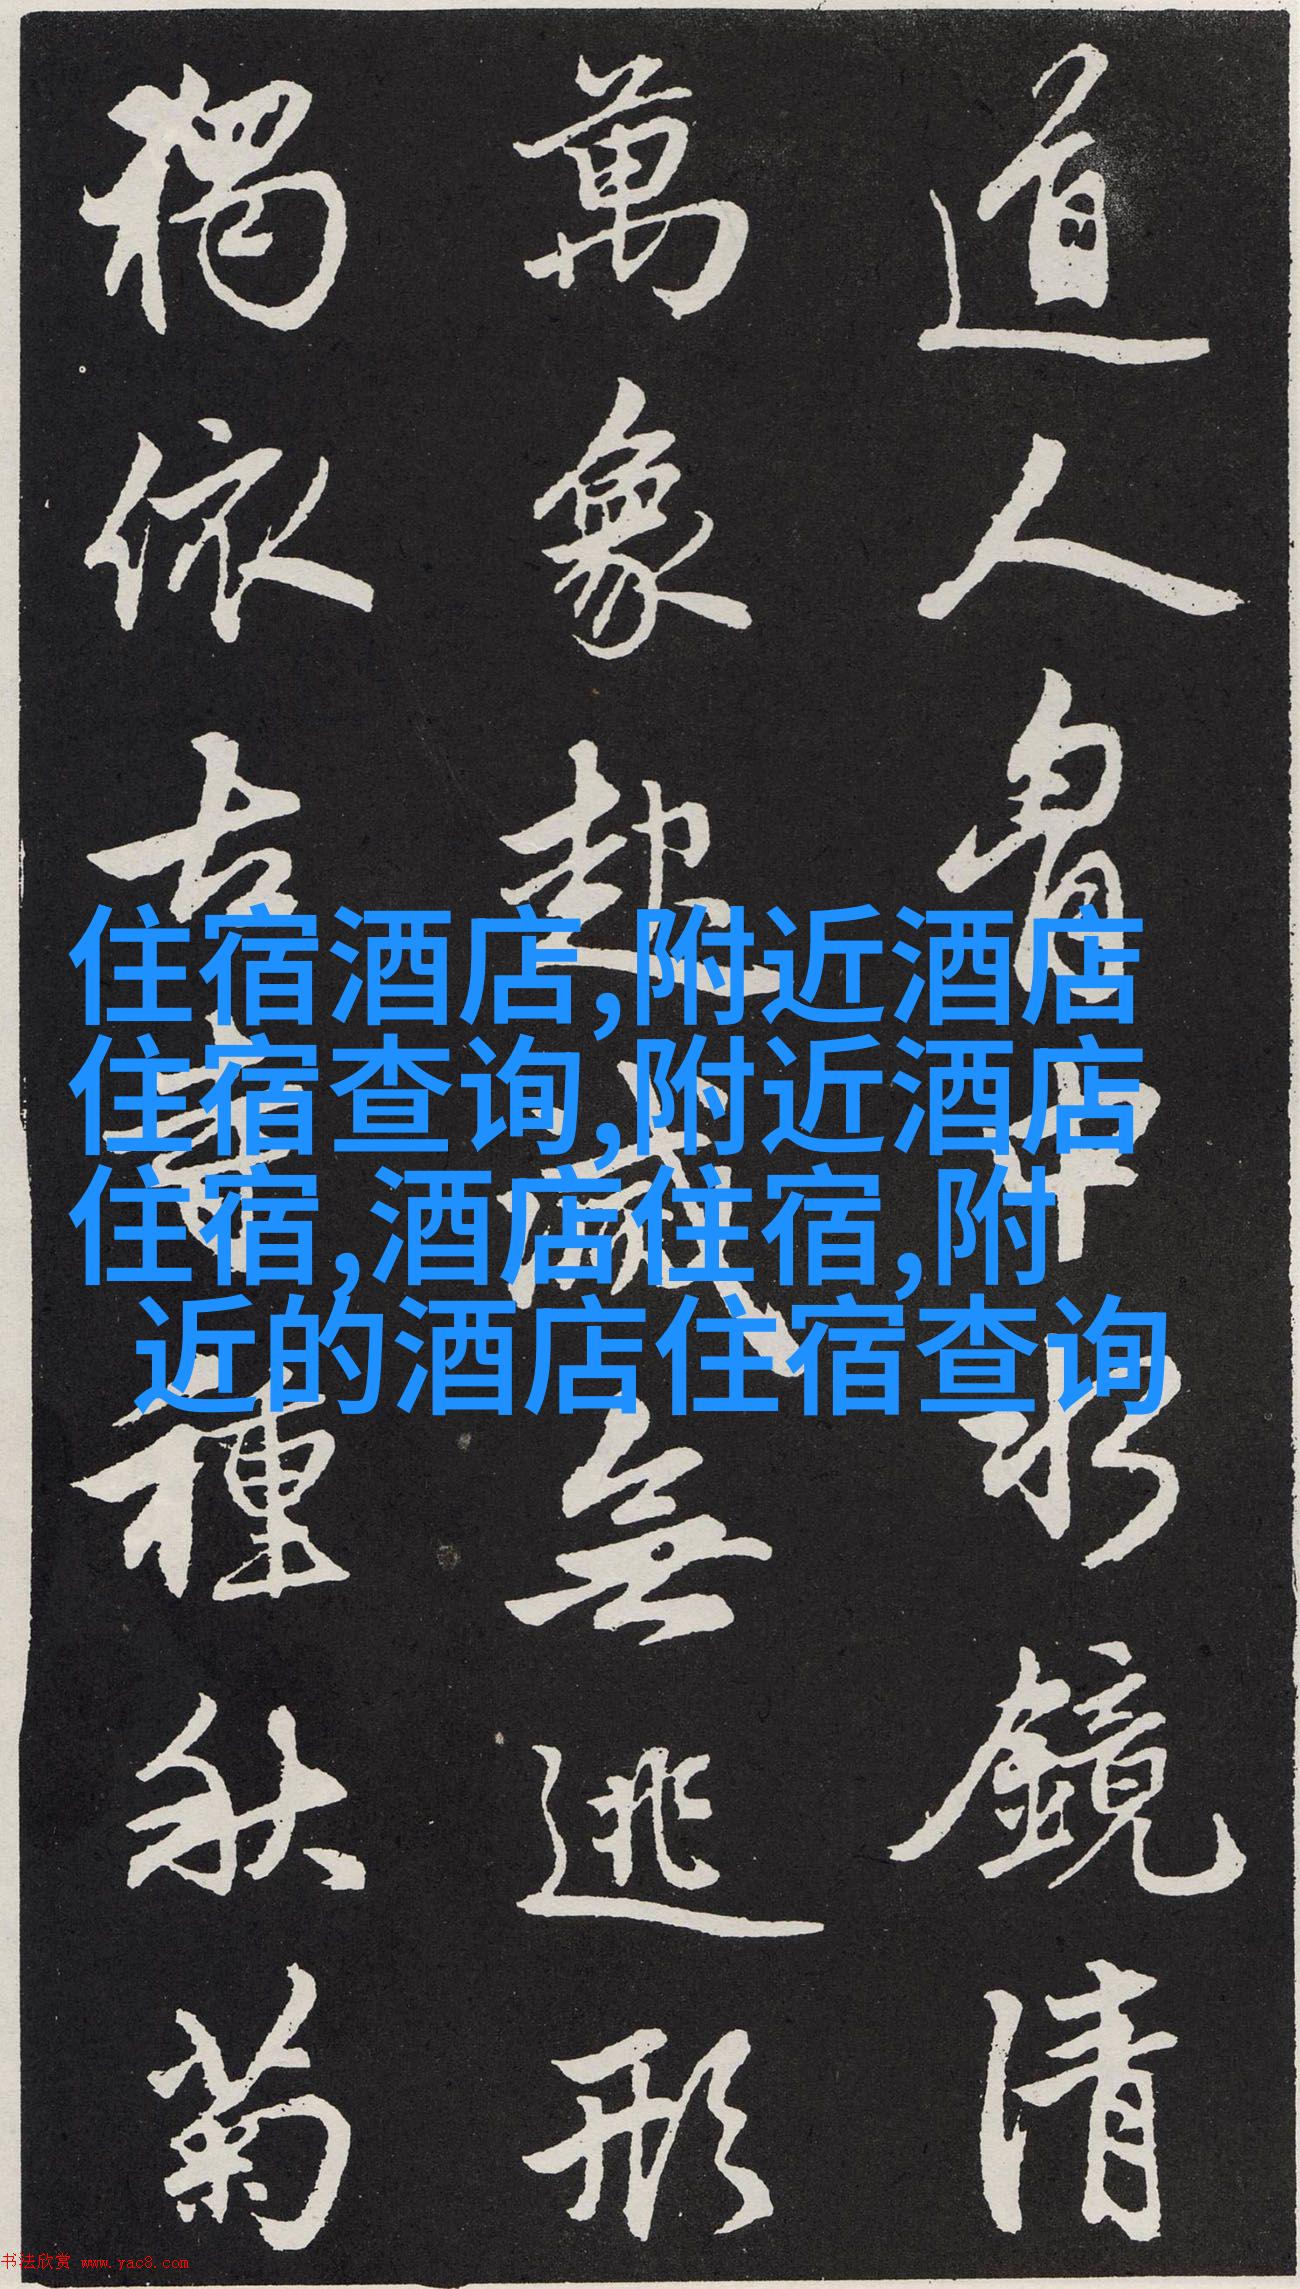 道人胷中水鏡清
萬象起滅無逃形
獨依古寺種秋菊
住宿酒店,附近酒店
住宿查询,附近酒店
住宿,酒店住宿,附
近的酒店住宿查询
书法欣赏 www.yac8.com